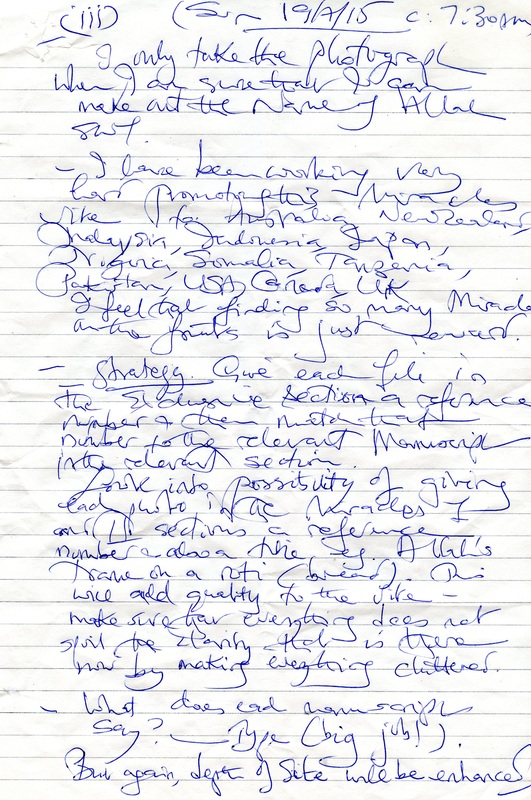 (iii) (Sun 19/7/15 c. 7:30pm)
I only take the photograph
when I am sure that I can
make out the Name of Allah
swt.
- I have been working very
hard promoting this Miracles
site for Australia, New Zealand
Malaysia, Indonesia, Japan,
Nigeria, Somalia, Tanzania,
Pakistan, USA, Canada, UK
I feel that finding so many Miracles
in the fruits is just reward.
- Strategy. Give each file in
the section a reference
number & then match that
number to the relevant Manuscript
in the relevant section.
Look into possibility of giving
each photo in the Miracles I
and II sections a reference
number & also a title eg Allah's
name on a roti (bread). This
will add quality to the site -
make sure that everything does not
spoil the clarity that is there
now by making everything cluttered.
- What does each manuscript
say? - Type (big job!).
But again, depth of Site will be enhanced